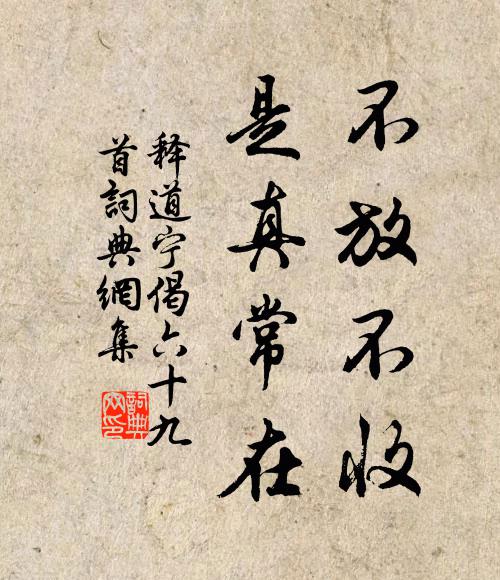 不放不收
是真常在
释道宁偈六十九
首詞典網集
詞典
网印